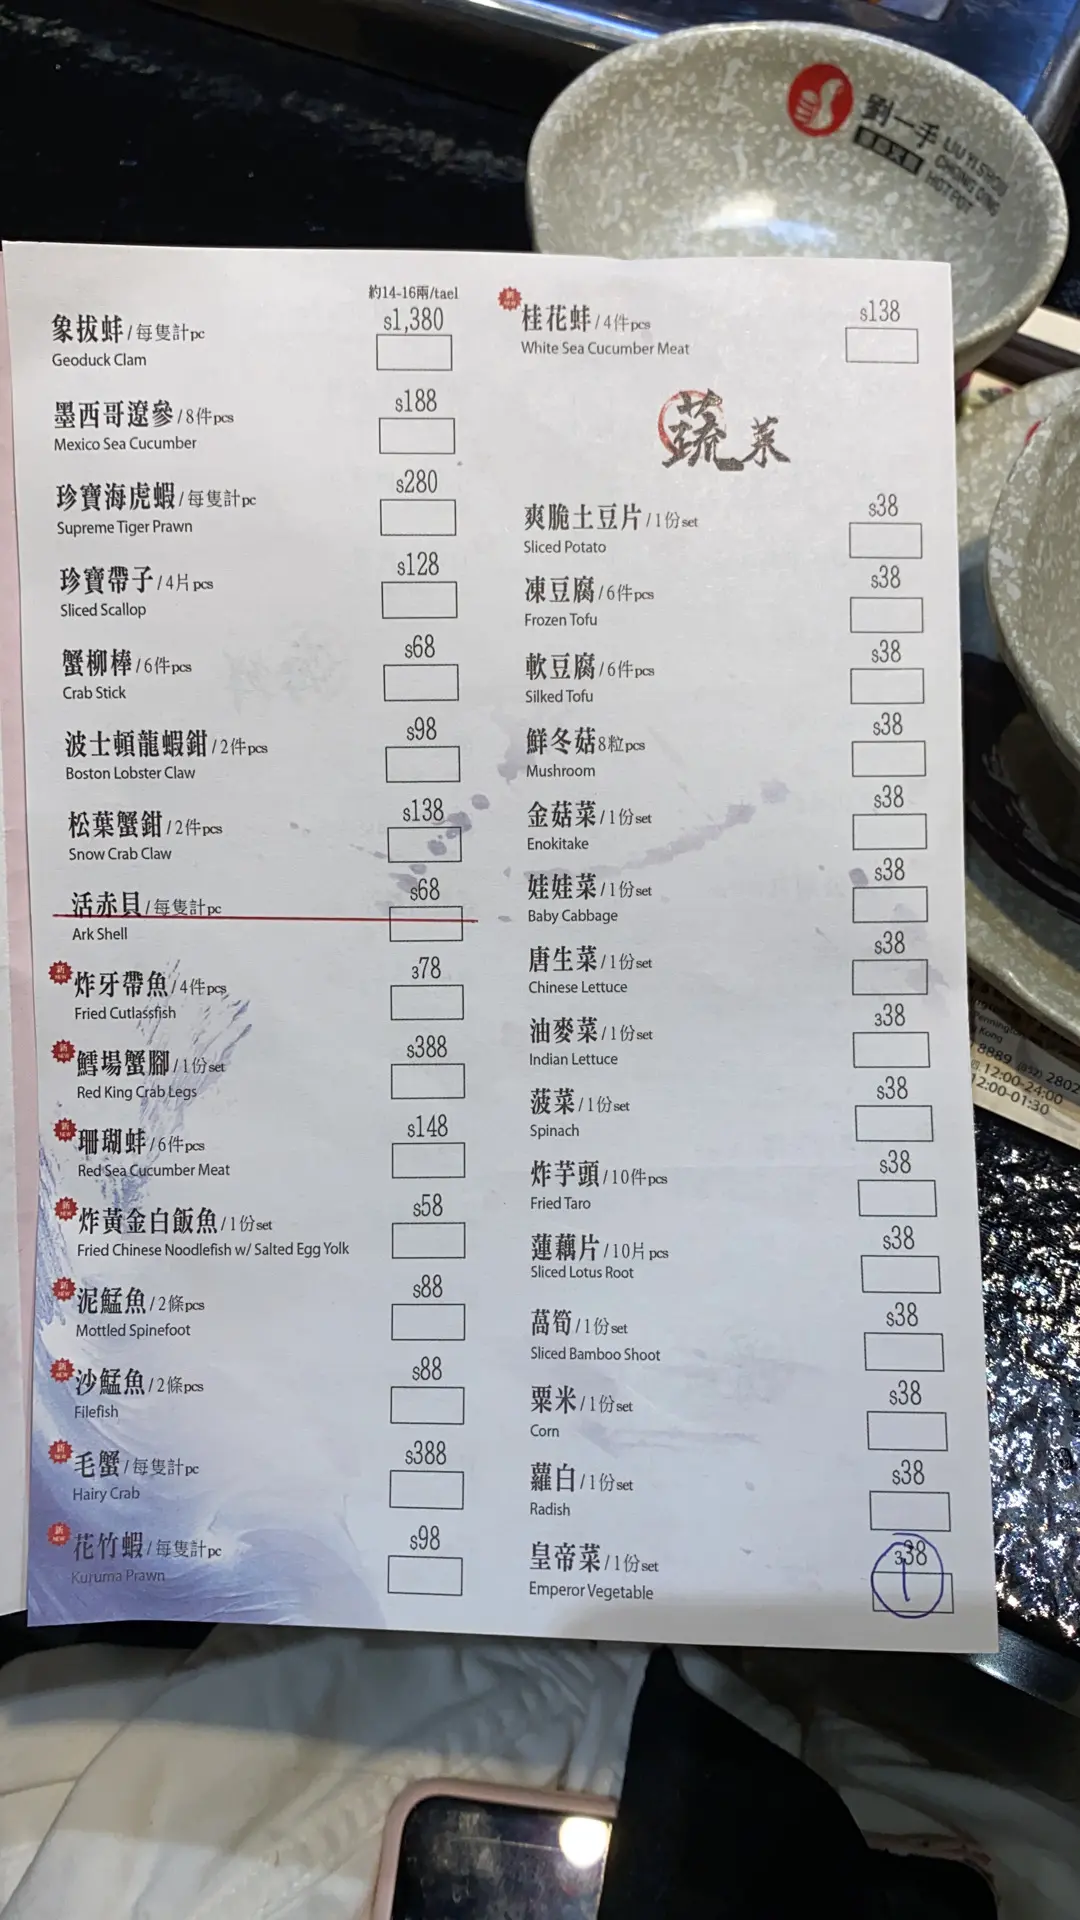 劉一手
重慶火鍋
LIU YISHOU
CHONG QING
HOTPOT
約14-16兩/tael
象拔蚌/每隻計pc
$1,380
Geoduck Clam
墨西哥遼參/8件pcs
$188
Mexico Sea Cucumber
珍寶海虎蝦/每隻計pc
$280
Supreme Tiger Prawn
珍寶帶子/4片pcs
$128
Sliced Scallop
蟹柳棒/6件pcs
$68
Crab Stick
波士頓龍蝦鉗/2件pcs
$98
Boston Lobster Claw
松葉蟹鉗/2件pcs
$138
Snow Crab Claw
活赤貝/每隻計pc
$68
Ark Shell
新 NEW
炸牙帶魚/4件pcs
$78
Fried Cutlassfish
新 NEW
鱈場蟹腳/1份set
$388
Red King Crab Legs
新 NEW
珊瑚蚌/6件pcs
$148
Red Sea Cucumber Meat
新 NEW
炸黃金白飯魚/1份set
$58
Fried Chinese Noodlefish w/ Salted Egg Yolk
新 NEW
泥鯭魚/2條pcs
$88
Mottled Spinefoot
新 NEW
沙鯭魚/2條pcs
$88
Filefish
新 NEW
毛蟹/每隻計pc
$388
Hairy Crab
新 NEW
花竹蝦/每隻計pc
$98
Kuruma Prawn
新 NEW
桂花蚌/4件pcs
$138
White Sea Cucumber Meat
蔬菜
爽脆土豆片/1份set
$38
Sliced Potato
凍豆腐/6件pcs
$38
Frozen Tofu
軟豆腐/6件pcs
$38
Silked Tofu
鮮冬菇8粒pcs
$38
Mushroom
金菇菜/1份set
$38
Enokitake
娃娃菜/1份set
$38
Baby Cabbage
唐生菜/1份set
$38
Chinese Lettuce
油麥菜/1份set
$38
Indian Lettuce
菠菜/1份set
$38
Spinach
炸芋頭/10件pcs
$38
Fried Taro
蓮藕片/10片pcs
$38
Sliced Lotus Root
萵筍/1份set
$38
Sliced Bamboo Shoot
粟米/1份set
$38
Corn
蘿白/1份set
$38
Radish
皇帝菜/1份set
$38
1
Emperor Vegetable
Kong
8889
2802
12:00-24:00
12:00-01:30